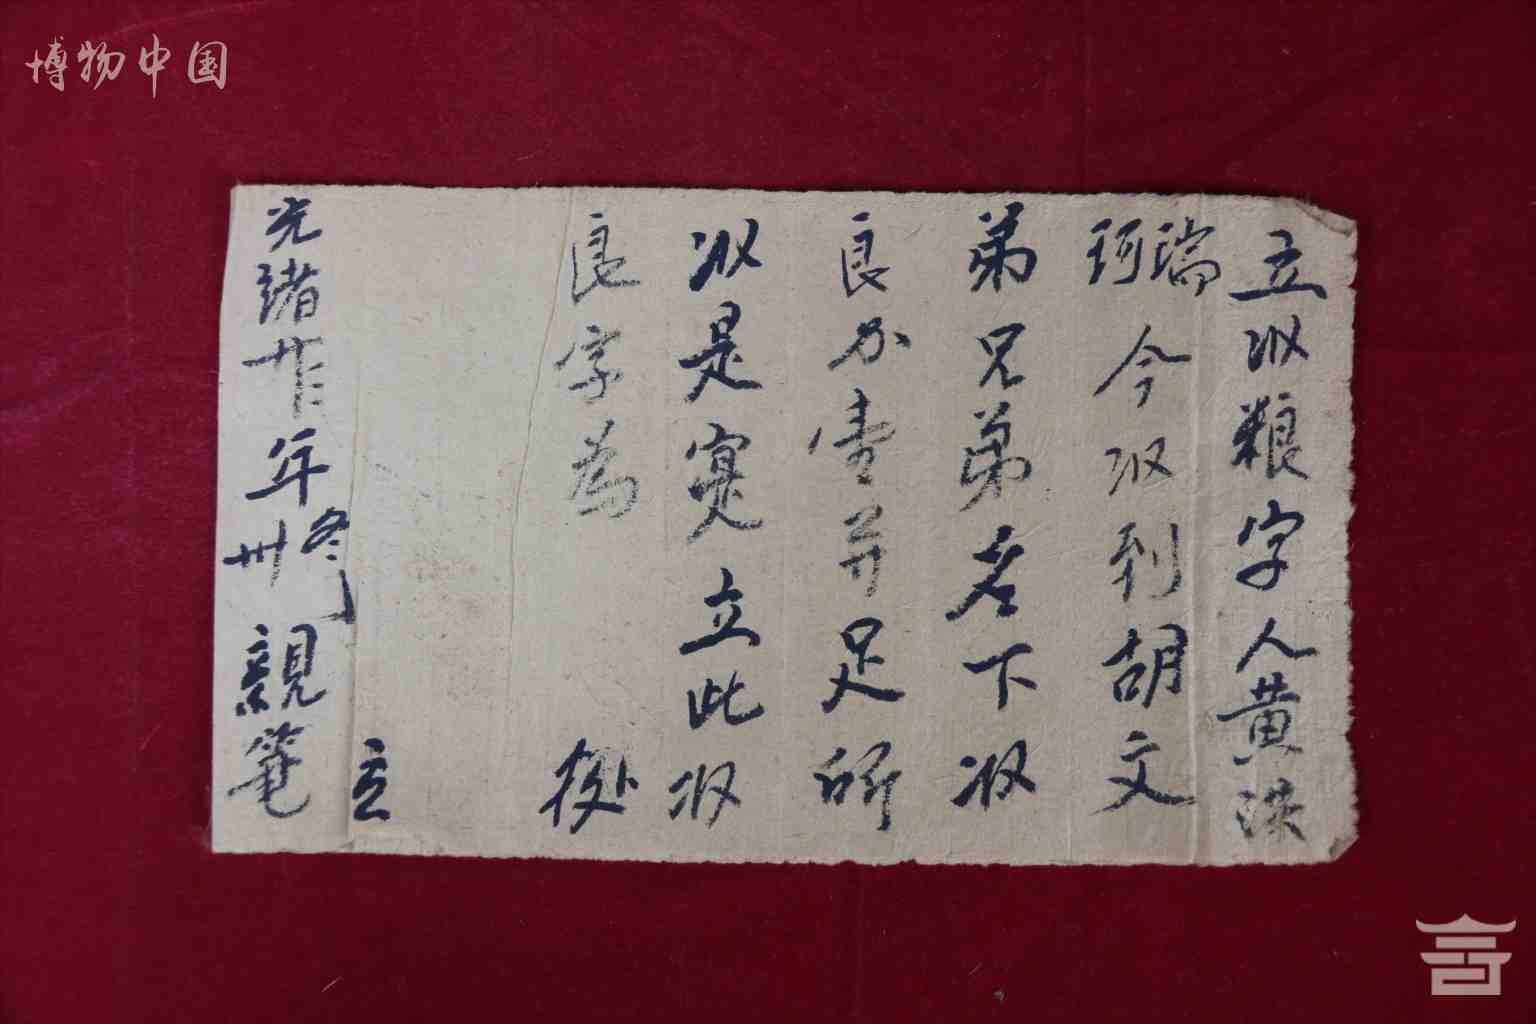 博物中国
立收粮字人黄洪
瑞珂今收到胡文
弟兄弟名下收
良分壹并足所
收是寔立此收
良字為处
立
光绪廿年冬月卅親筆